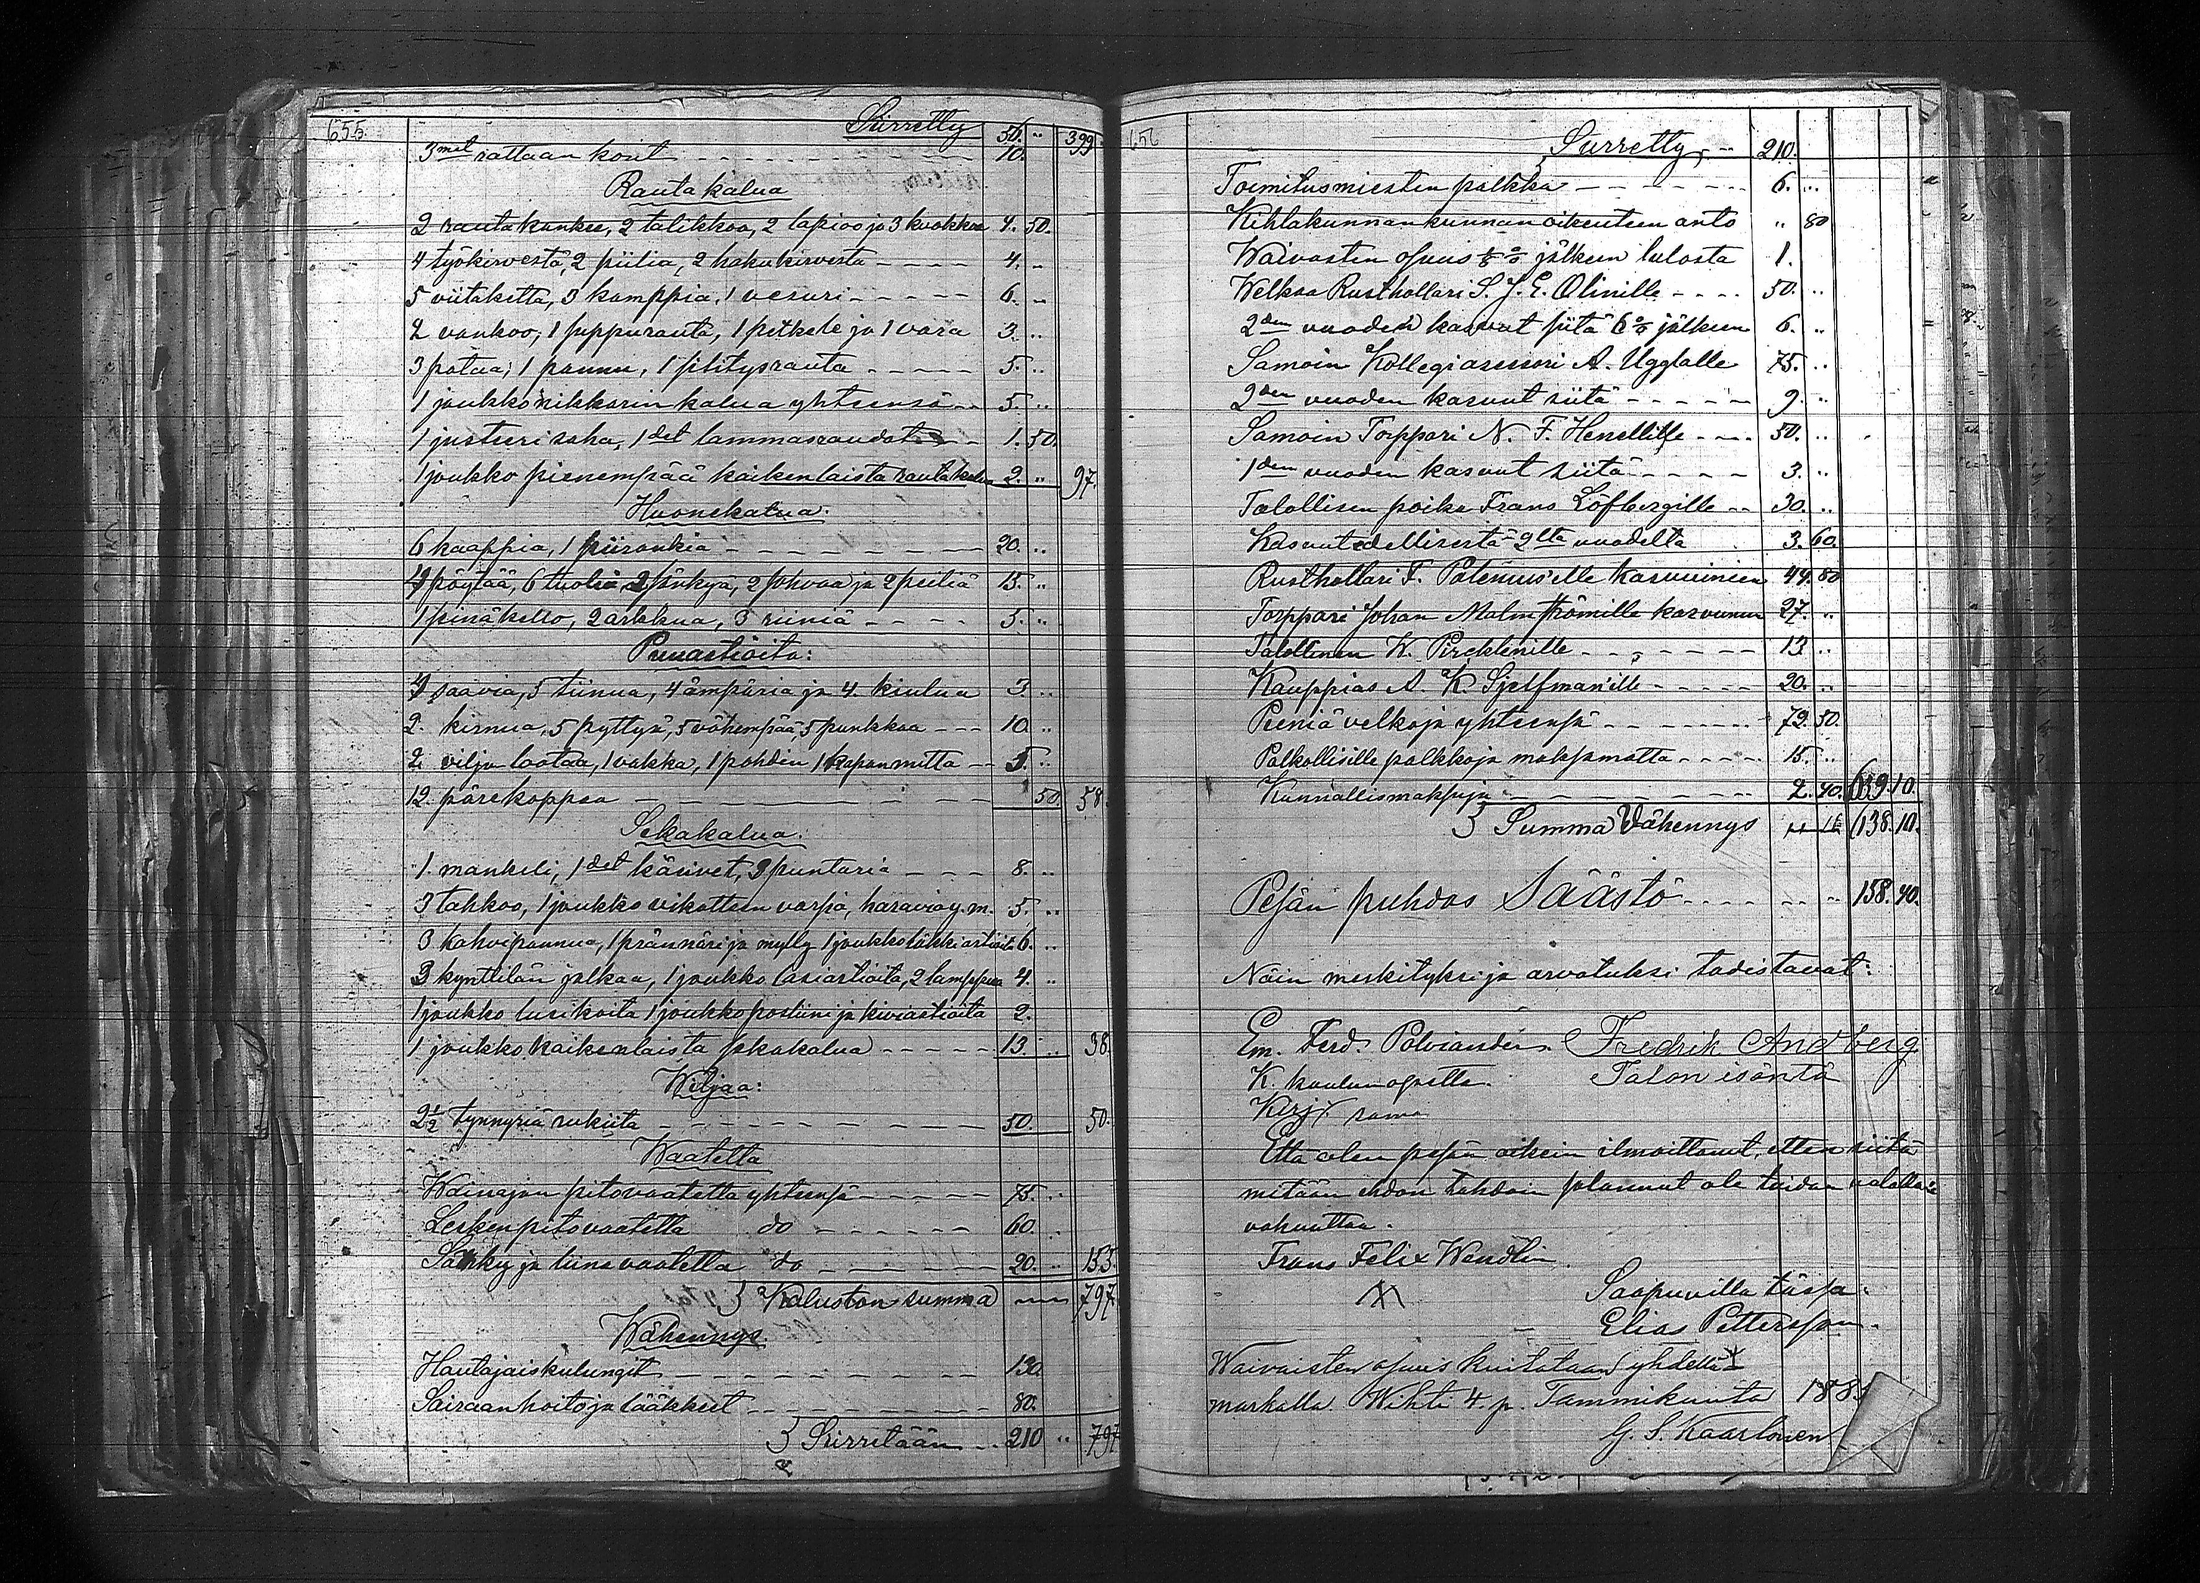 655.
Siirretty 56. " 399
3met rattaan kont 10.
Rautakalua
2 rautakankee, 2 talikkoa, 2 lapioo ja 3 kuokkaa 4. 50.
4 työkirvestä, 2 piilia, 2 hakukirvestä 4. "
5 viitaketta, 3 kamppia, 1 vesuri 6. "
2 vankoo, 1 juppurauta, 1 petkele ja 1 vara 3. "
3 pataa, 1 pannu, 1 silitysrauta 5. "
1 joukko nikkarin kalua yhteensä 5. "
1 justieri saha, 1det lammasraudat 1. 50.
1 joukko pienempää kaikenlaista rautakalua 2. " 97.
Huonekalua:
6 kaappia, 1 piironkia 20. "
4 pöytää, 6 tuolia, 2 sänkyä, 2 sohvaa ja 2 peiliä 15. "
1 seinäkello, 2 arkkua, 3 riiniä 5. "
Puuastioita:
4 saavia, 5 tiinua, 4 ämpäriä ja 4. kiulua 3 "
2. kirnua, 5 pyttyä, 5 vähempää, 5 punkkaa 10. "
2 vilja laataa, 1 vakka, 1 pohdin 1 kapanmitta 5. "
12. pärekoppaa 50. 58.
Sekakalua:
1. mankeli, 1det käsivet, 3 puntaria 8. "
3 tahkoo, 1 joukko vikatteen varsia, haravia y. m. 5. "
3 kahvipannua, 1 prännäri ja mylly 1 joukko läkkiastioita 6. "
3 kynttilän jalkaa, 1 joukko lasiastioita, 2 lamppua 4. "
1 joukko lusikoita 1 joukko posliini ja kiviastioita 2.
1 joukko kaikenlaista sekakalua 13. " 38.
Wiljaa:
2 1/2 tynnyriä rukiita 50. 50.
Waatetta
Wainajan pitovaatetta yhteensä 75. "
Lesken pitovaatetta do 60. "
Sänky ja liinavaatetta do 20. " 155.
Kaluston summa 797.
Wähennys.
Hautajaiskulungit 130.
Sairaanhoito ja lääkkeet 80.
Siirretään 210 " 797
656
Siirretty 210.
Toimitusmiesten palkka 6. "
Kihlakunnankunnan oikeuteen anto " 80
Waivasten osuus 1/8 % jälkeen tulosta 1.
Welkaa Rusthollari S. J. E. Olinille 50. "
2den vuoden kasvut siitä 6 % jälkeen 6. "
Samoin Kollegiasessori A. Ugglalle 75. "
2den vuoden kasvut siitä 9. "
Samoin Torppari N. F. Henellille 50. "
1den vuoden kasvut siitä 3. "
Talollisen poika Frans Löfbergille 30. "
Kasvut edellisestä 2lta vuodelta 3. 60.
Rusthollari F. Polenius'elle kasvuinien 44. 80
Torppari Johan Malmströmille kasvunen 27. "
Talollinen W. Pircklenille 13 "
Kauppias A. K. Sjelfman'ille 20. "
Pieniä velkoja yhteensä 72. 50.
Palkollisille palkkoja maksamatta 15. "
Kunnallismaksuja 2. 40. 639. 10.
Summa Vähennys 638. 10.
Pesän puhdas Säästö 158. 90.
Näin merkityksi ja arvatuksi todistavat:
Em. Ferd. Polviander. Fredrik Andberg
K. koulun opett. Talon isäntä
Kirj. sama
Että olen pesän oikein ilmoittanut, etten siitä
mitään ehdon tahdoin salannut ole taidan valallani
vahvuttaa.
Frans Felix Wendlin
Saapuvilla tässä:
Elias Pettersson.
Waivaisten osuus kuitataan yhdellä
markalla. Wihti 4. p. Tammikuuta 188
G. S. Kaarlonen